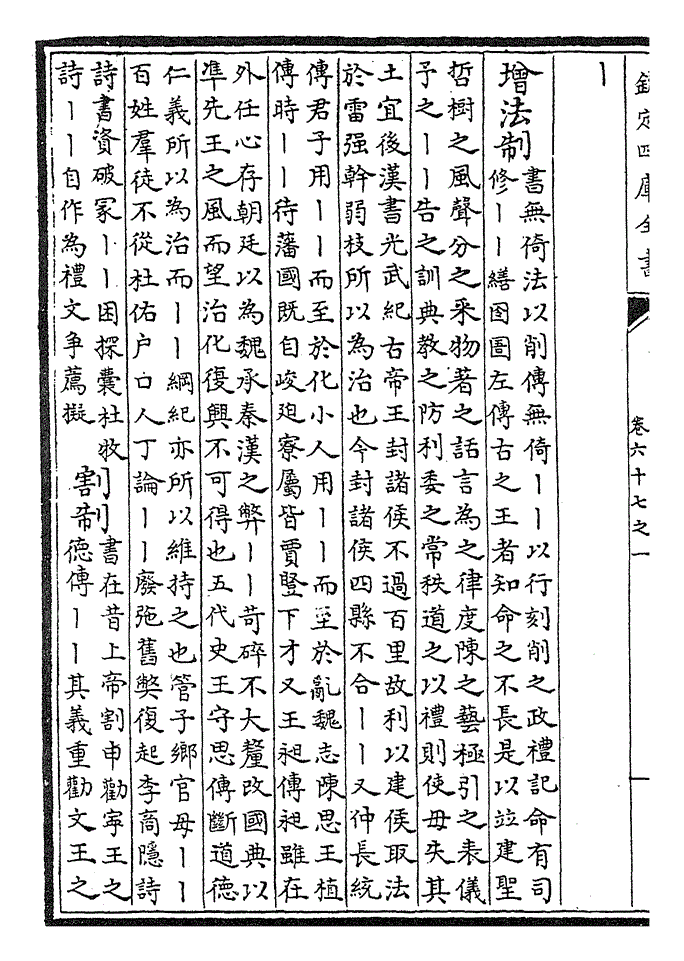 欽定四庫全書
卷六十七之一
一
丨
增法制
書無倚法以削傳無倚丨丨以行刻削之政禮記命有司
修丨丨繕囹圄左傳古之王者知命之不長是以竝建聖
哲樹之風聲分之采物著之話言為之律度陳之藝極引之表儀
予之丨丨告之訓典教之防利委之常秩道之以禮則使毋失其
土宜後漢書光武紀古帝王封諸侯不過百里故利以建侯取法
於雷强幹弱枝所以為治也今封諸侯四縣不合丨丨又仲長統
傳君子用丨丨而至於化小人用丨丨而至於亂魏志陳思王植
傳時丨丨待藩國既自峻迫寮屬皆賈豎下才又王昶傳昶雖在
外任心存朝廷以為魏承秦漢之弊丨丨苛碎不大釐改國典以
準先王之風而望治化復興不可得也五代史王守恩傳斷道德
仁義所以為治而丨丨綱紀亦所以維持之也管子鄉官毋丨丨
百姓羣徒不從杜佑户口人丁論丨丨廢弛舊弊復起李商隱詩
詩書資破冢丨丨困探囊杜牧
詩丨丨自作為禮文爭薦擬
割制
書在昔上帝割申勸寧王之
德傳丨丨其義重勸文王之